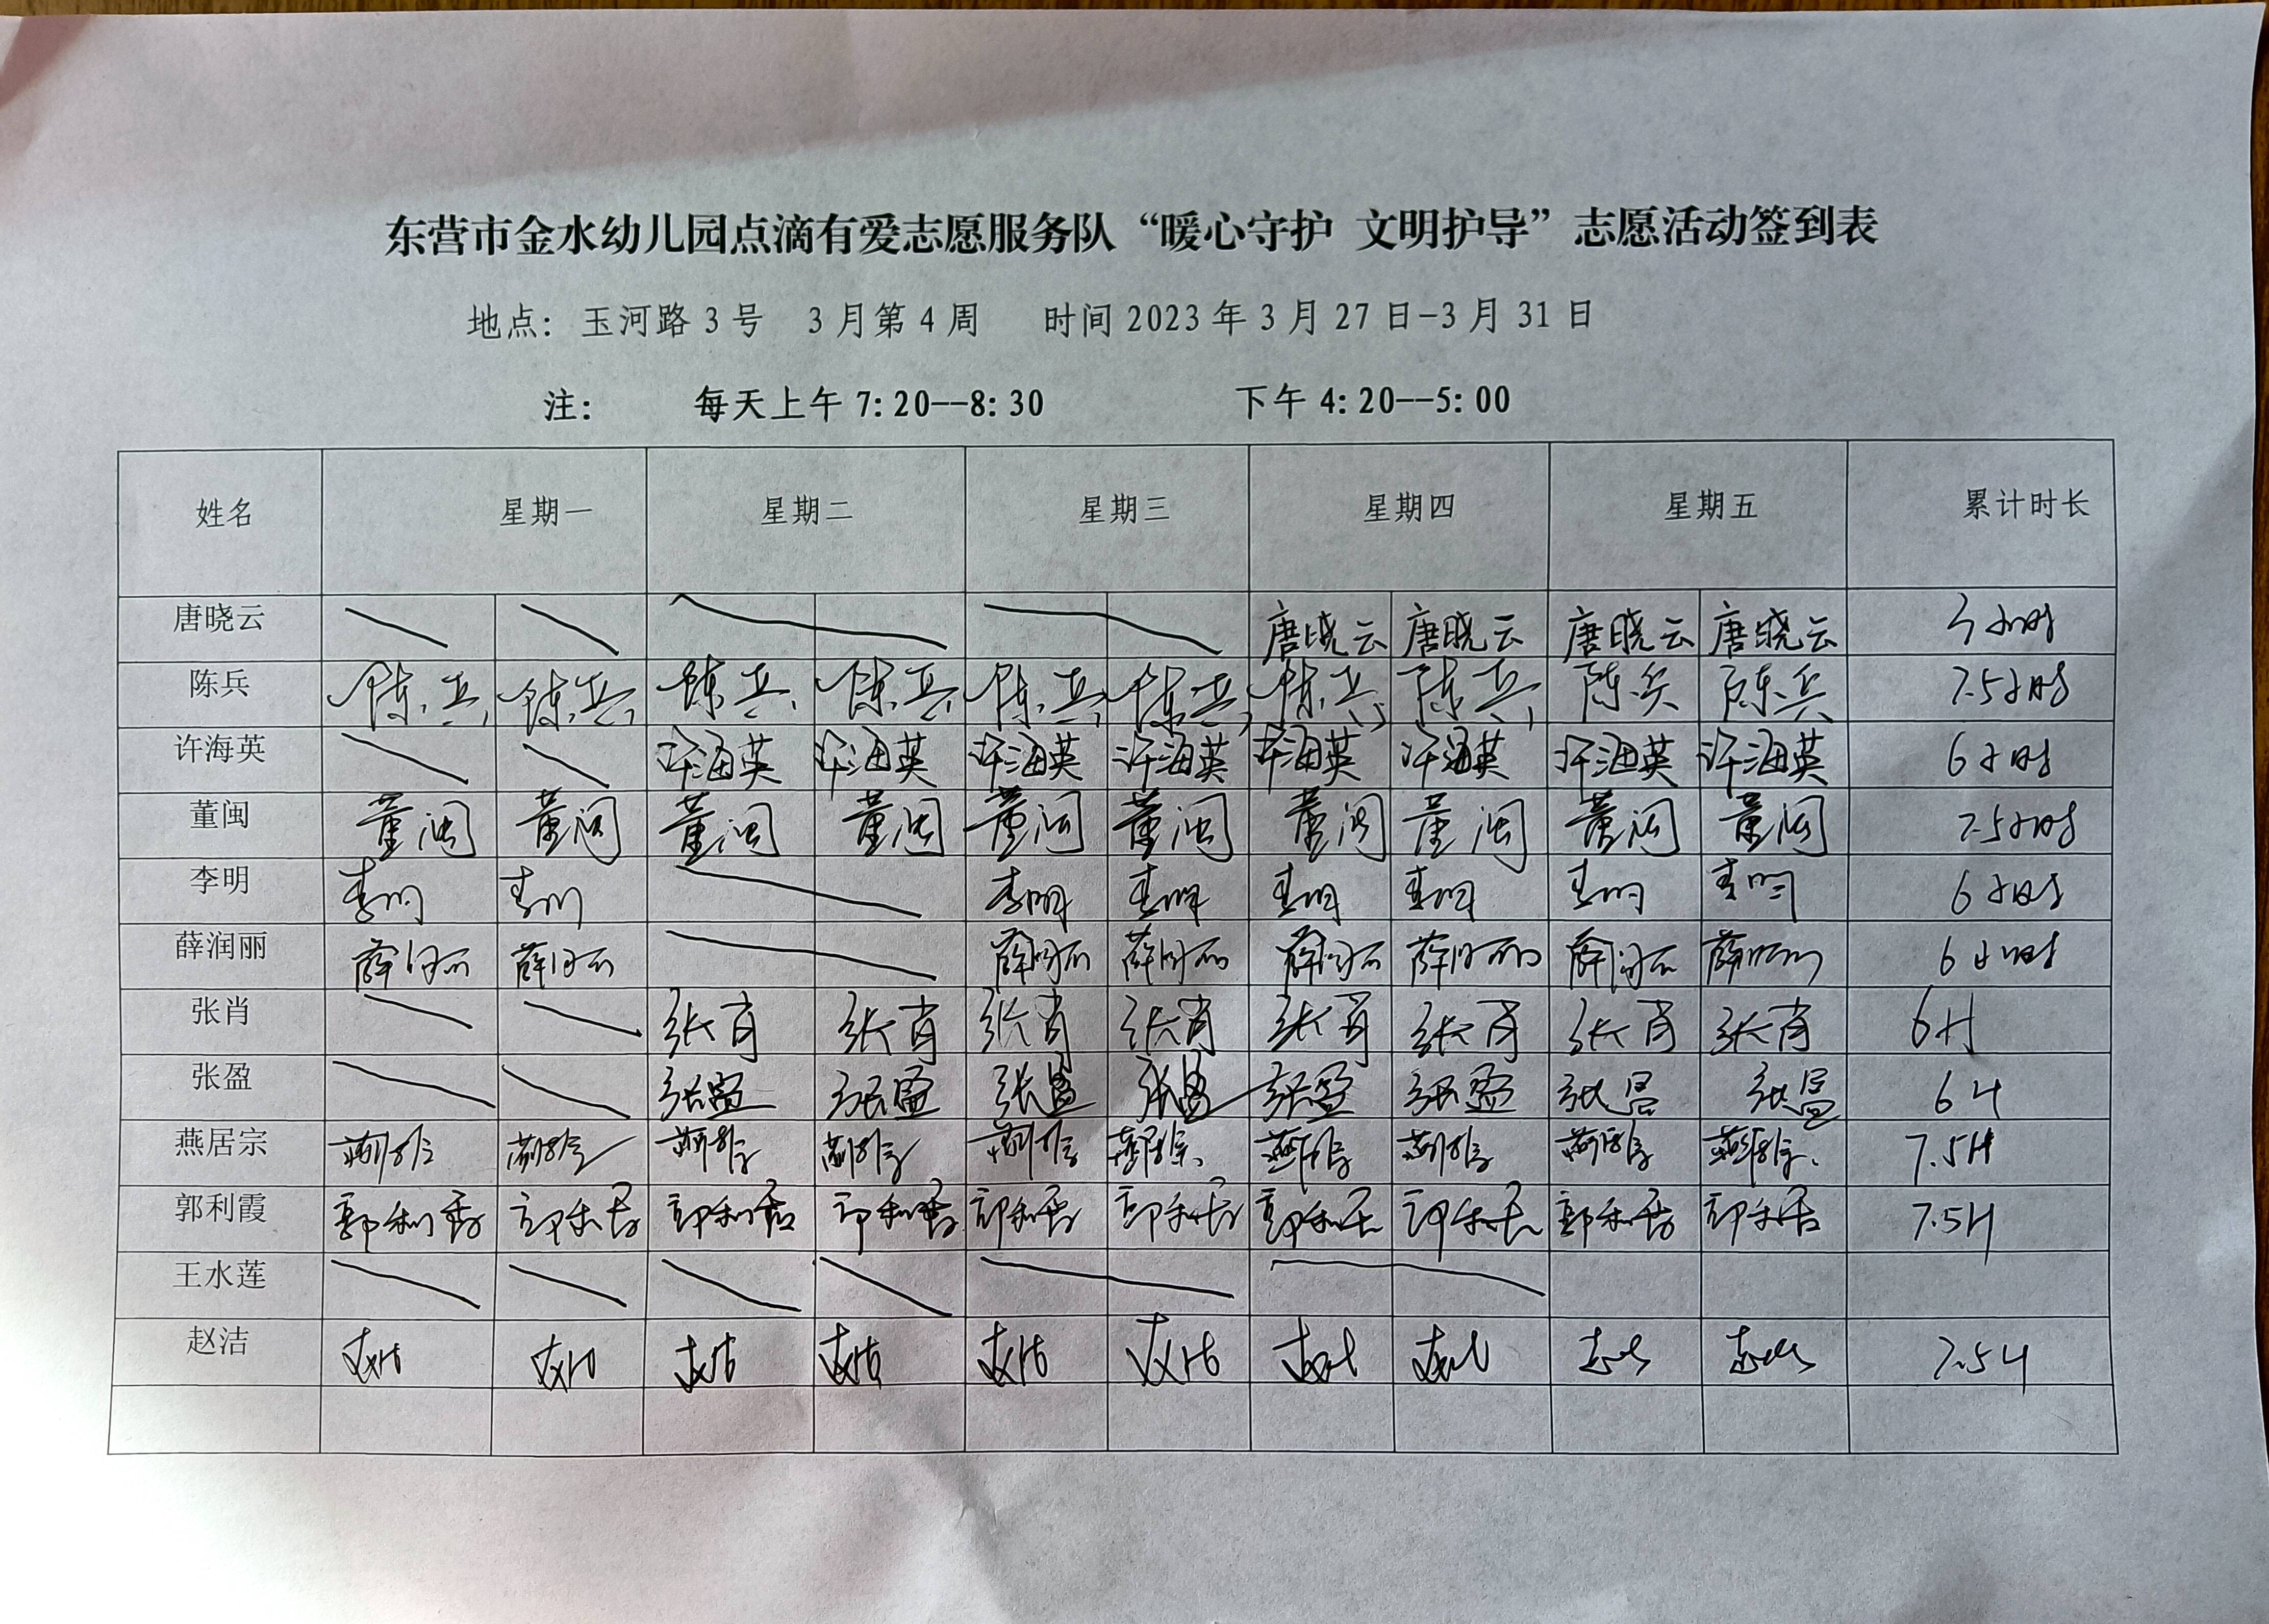 东营市金水幼儿园点滴有爱志愿服务队“暖心守护 文明护导”志愿活动签到表
地点：玉河路3号 3月第4周 时间2023年3月27日-3月31日
注： 每天上午7:20--8:30 下午4:20--5:00
姓名 星期一 星期二 星期三 星期四 星期五 累计时长
唐晓云 唐晓云 唐晓云 唐晓云 唐晓云 3小时
陈兵 陈兵 陈兵 陈兵 陈兵 陈兵 陈兵 陈兵 陈兵 陈兵 陈兵 7.5小时
许海英 许海英 许海英 许海英 许海英 许海英 许海英 许海英 许海英 6小时
董闽 董闽 董闽 董闽 董闽 董闽 董闽 董闽 董闽 董闽 董闽 7.5小时
李明 李明 李明 李明 李明 李明 李明 李明 李明 6小时
薛润丽 薛润丽 薛润丽 薛润丽 薛润丽 薛润丽 薛润丽 薛润丽 薛润丽 6小时
张肖 张肖 张肖 张肖 张肖 张肖 张肖 张肖 张肖 6H
张盈 张盈 张盈 张盈 张盈 张盈 张盈 张盈 张盈 6H
燕居宗 燕居宗 燕居宗 燕居宗 燕居宗 燕居宗 燕居宗 燕居宗 燕居宗 燕居宗 燕居宗 7.5H
郭利霞 郭利霞 郭利霞 郭利霞 郭利霞 郭利霞 郭利霞 郭利霞 郭利霞 郭利霞 郭利霞 7.5H
王水莲
赵洁 赵洁 赵洁 赵洁 赵洁 赵洁 赵洁 赵洁 赵洁 赵洁 赵洁 7.5H